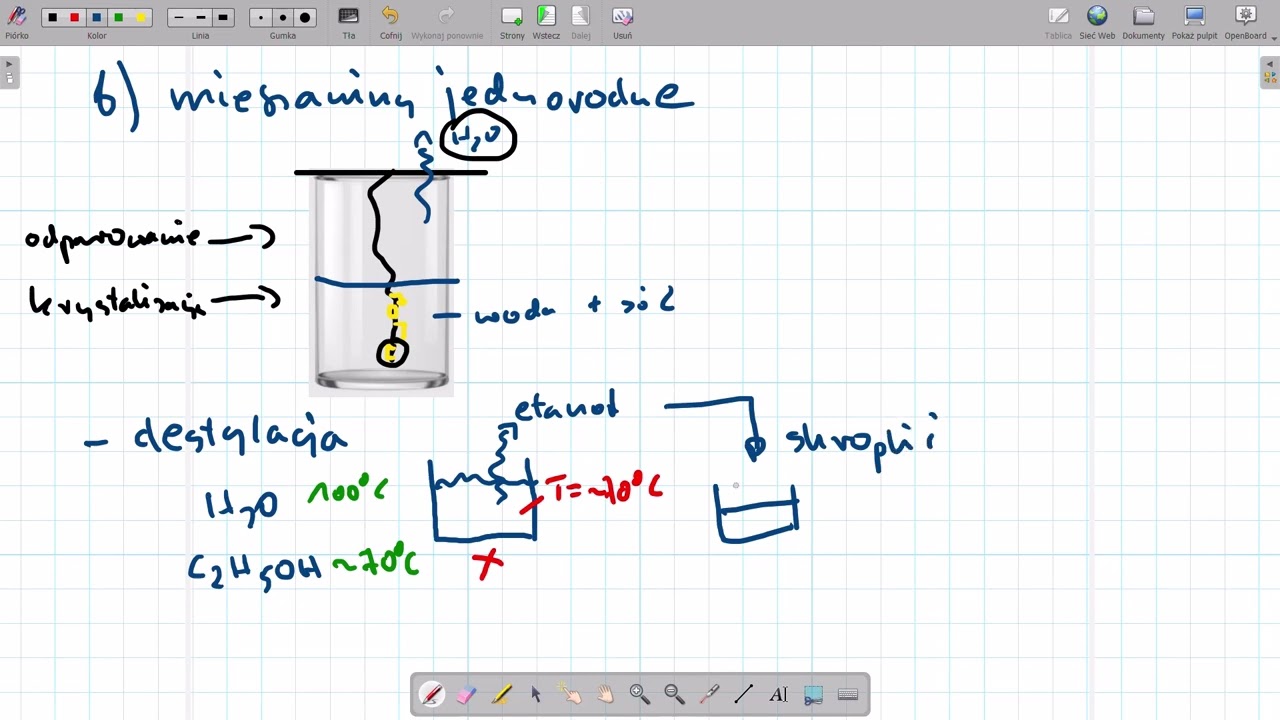 Pióro Kolor Linia Gumka Tła Cofnij Wykonaj ponownie Strony Wstecz Dalej Usuń Tablica Sieć Web Dokumenty Pokaż pulpit OpenBoard
b) mieszaniny jednorodne
H₂O
odparowanie
krystalizacja
woda + sól
etanol
- destylacja
skropli
H₂O 100°C
T=~70°C
C₂H₅OH ~70°C
AI